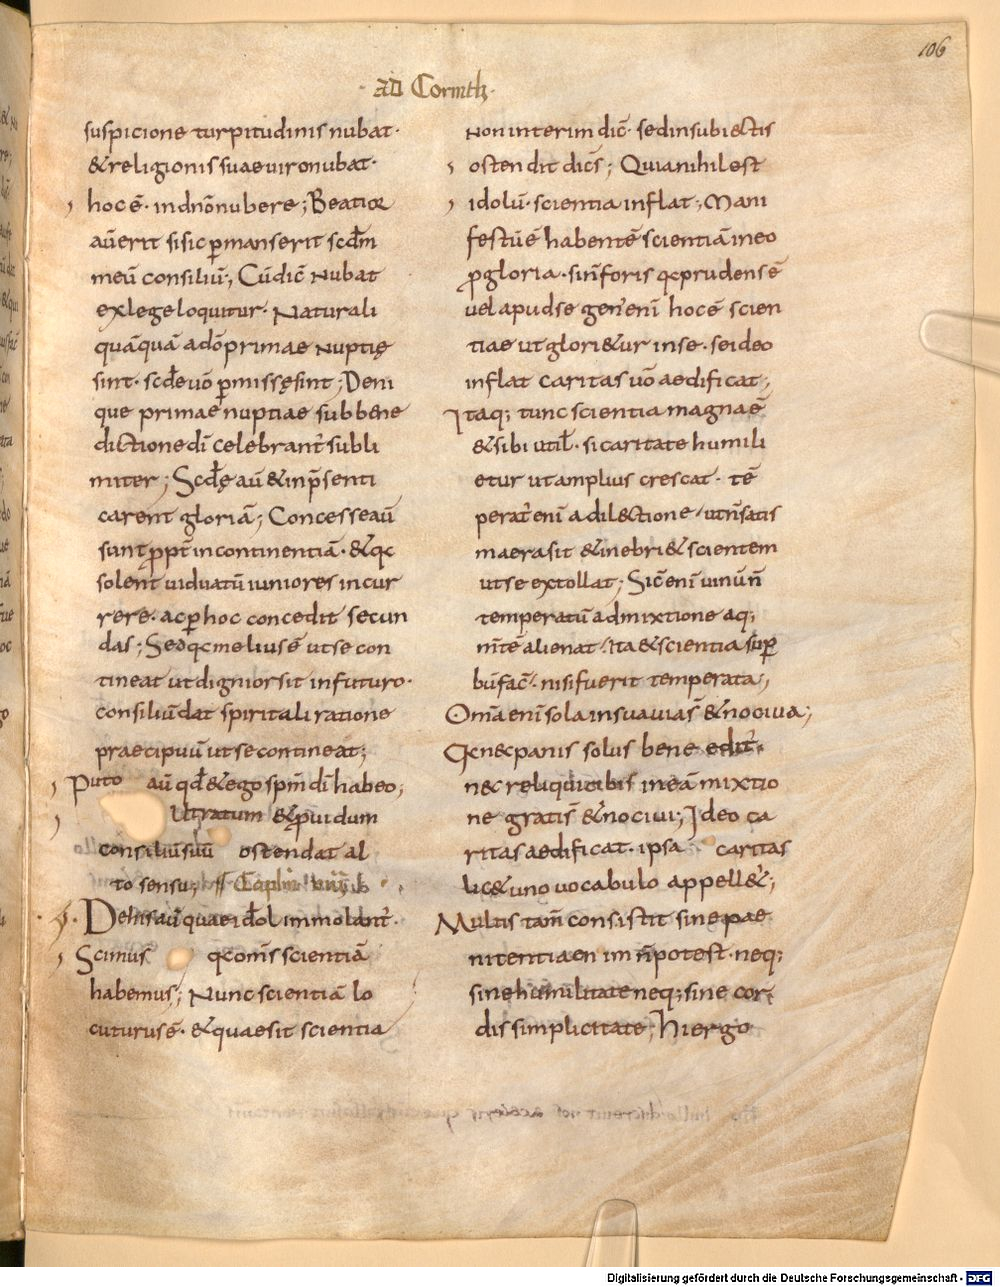 106
ad Corinth
suspicione turpitudinis nubat·
& religionis suae uiro nubat·
hoc ē· in dnō nubere; Beatior
aū erit si sic p̄manserit scd̄m
meū consiliū; Cū dic̄ nubat
ex lege loquitur· Naturali
quāquā a dō primae nuptię
sint· scd̄e uō p̄missę sint; Deni
que primae nuptiae sub bene
dictione dī celebrant̄ subli
miter; Scd̄ę aū & in p̄senti
carent gloriā; Concesse aū
sunt ppt̄ incontinentiā· & qc
solent uiduatū iuniores incur
rere· ac p̄ hoc concedit secun
das; Sed qc melius ē ut se con
tineat ut dignior sit in futuro·
consiliū dat spiritali ratione
praecipuū ut se contineat;
Puto aū qd̄ & ego spm̄ dī habeo;
Ut ratum & puidum
consiliū suū ostendat al
to sensu; Cap
De his aū quae idol immolant̄·
Scimus qc om̄s scientiā
habemus; Nunc scientiā lo
cuturus ē· & quae sit scientia
Non interim dic̄· sed in subiectis
ostendit dic̄s; Quia nihil est
idolū· scientia inflat; Mani
festū ē habentē scientiā in eo
p̄gloriari· si n̄ foris qc prudens ē
uel apud se gen' enī hoc ē scien
tiae ut glori&ur in se· se ideo
inflat caritas uō aedificat;
Itaq; tunc scientia magna ē
& sibi util̄· si caritate humili
etur ut amplius crescat· tē
perat̄ enī a dilectione· ut n̄ satis
maerasit & inebri& scientem
ut se extollat; Sic̄ enī uinū n̄
temperatū admixtione aq;
m̄tē alienat· Ita & scientia sup̄
bū fac̄· nisi fuerit temperata;
Om̄a enī sola insuauia s̄ & nociua;
Qc nec panis solus bene edit̄·
nec reliqui cibi s in eā mixtio
ne grati s̄ & nociui; Ideo ca
ritas aedificat· ipsa caritas
lic& uno uocabulo appell&;
Multis tam̄ consistit sine pae
nitentia en im n̄ potest· neq;
sine humilitate neq; sine cor
dis simplicitate; Hi ergo
Digitalisierung gefördert durch die Deutsche Forschungsgemeinschaft - DFG